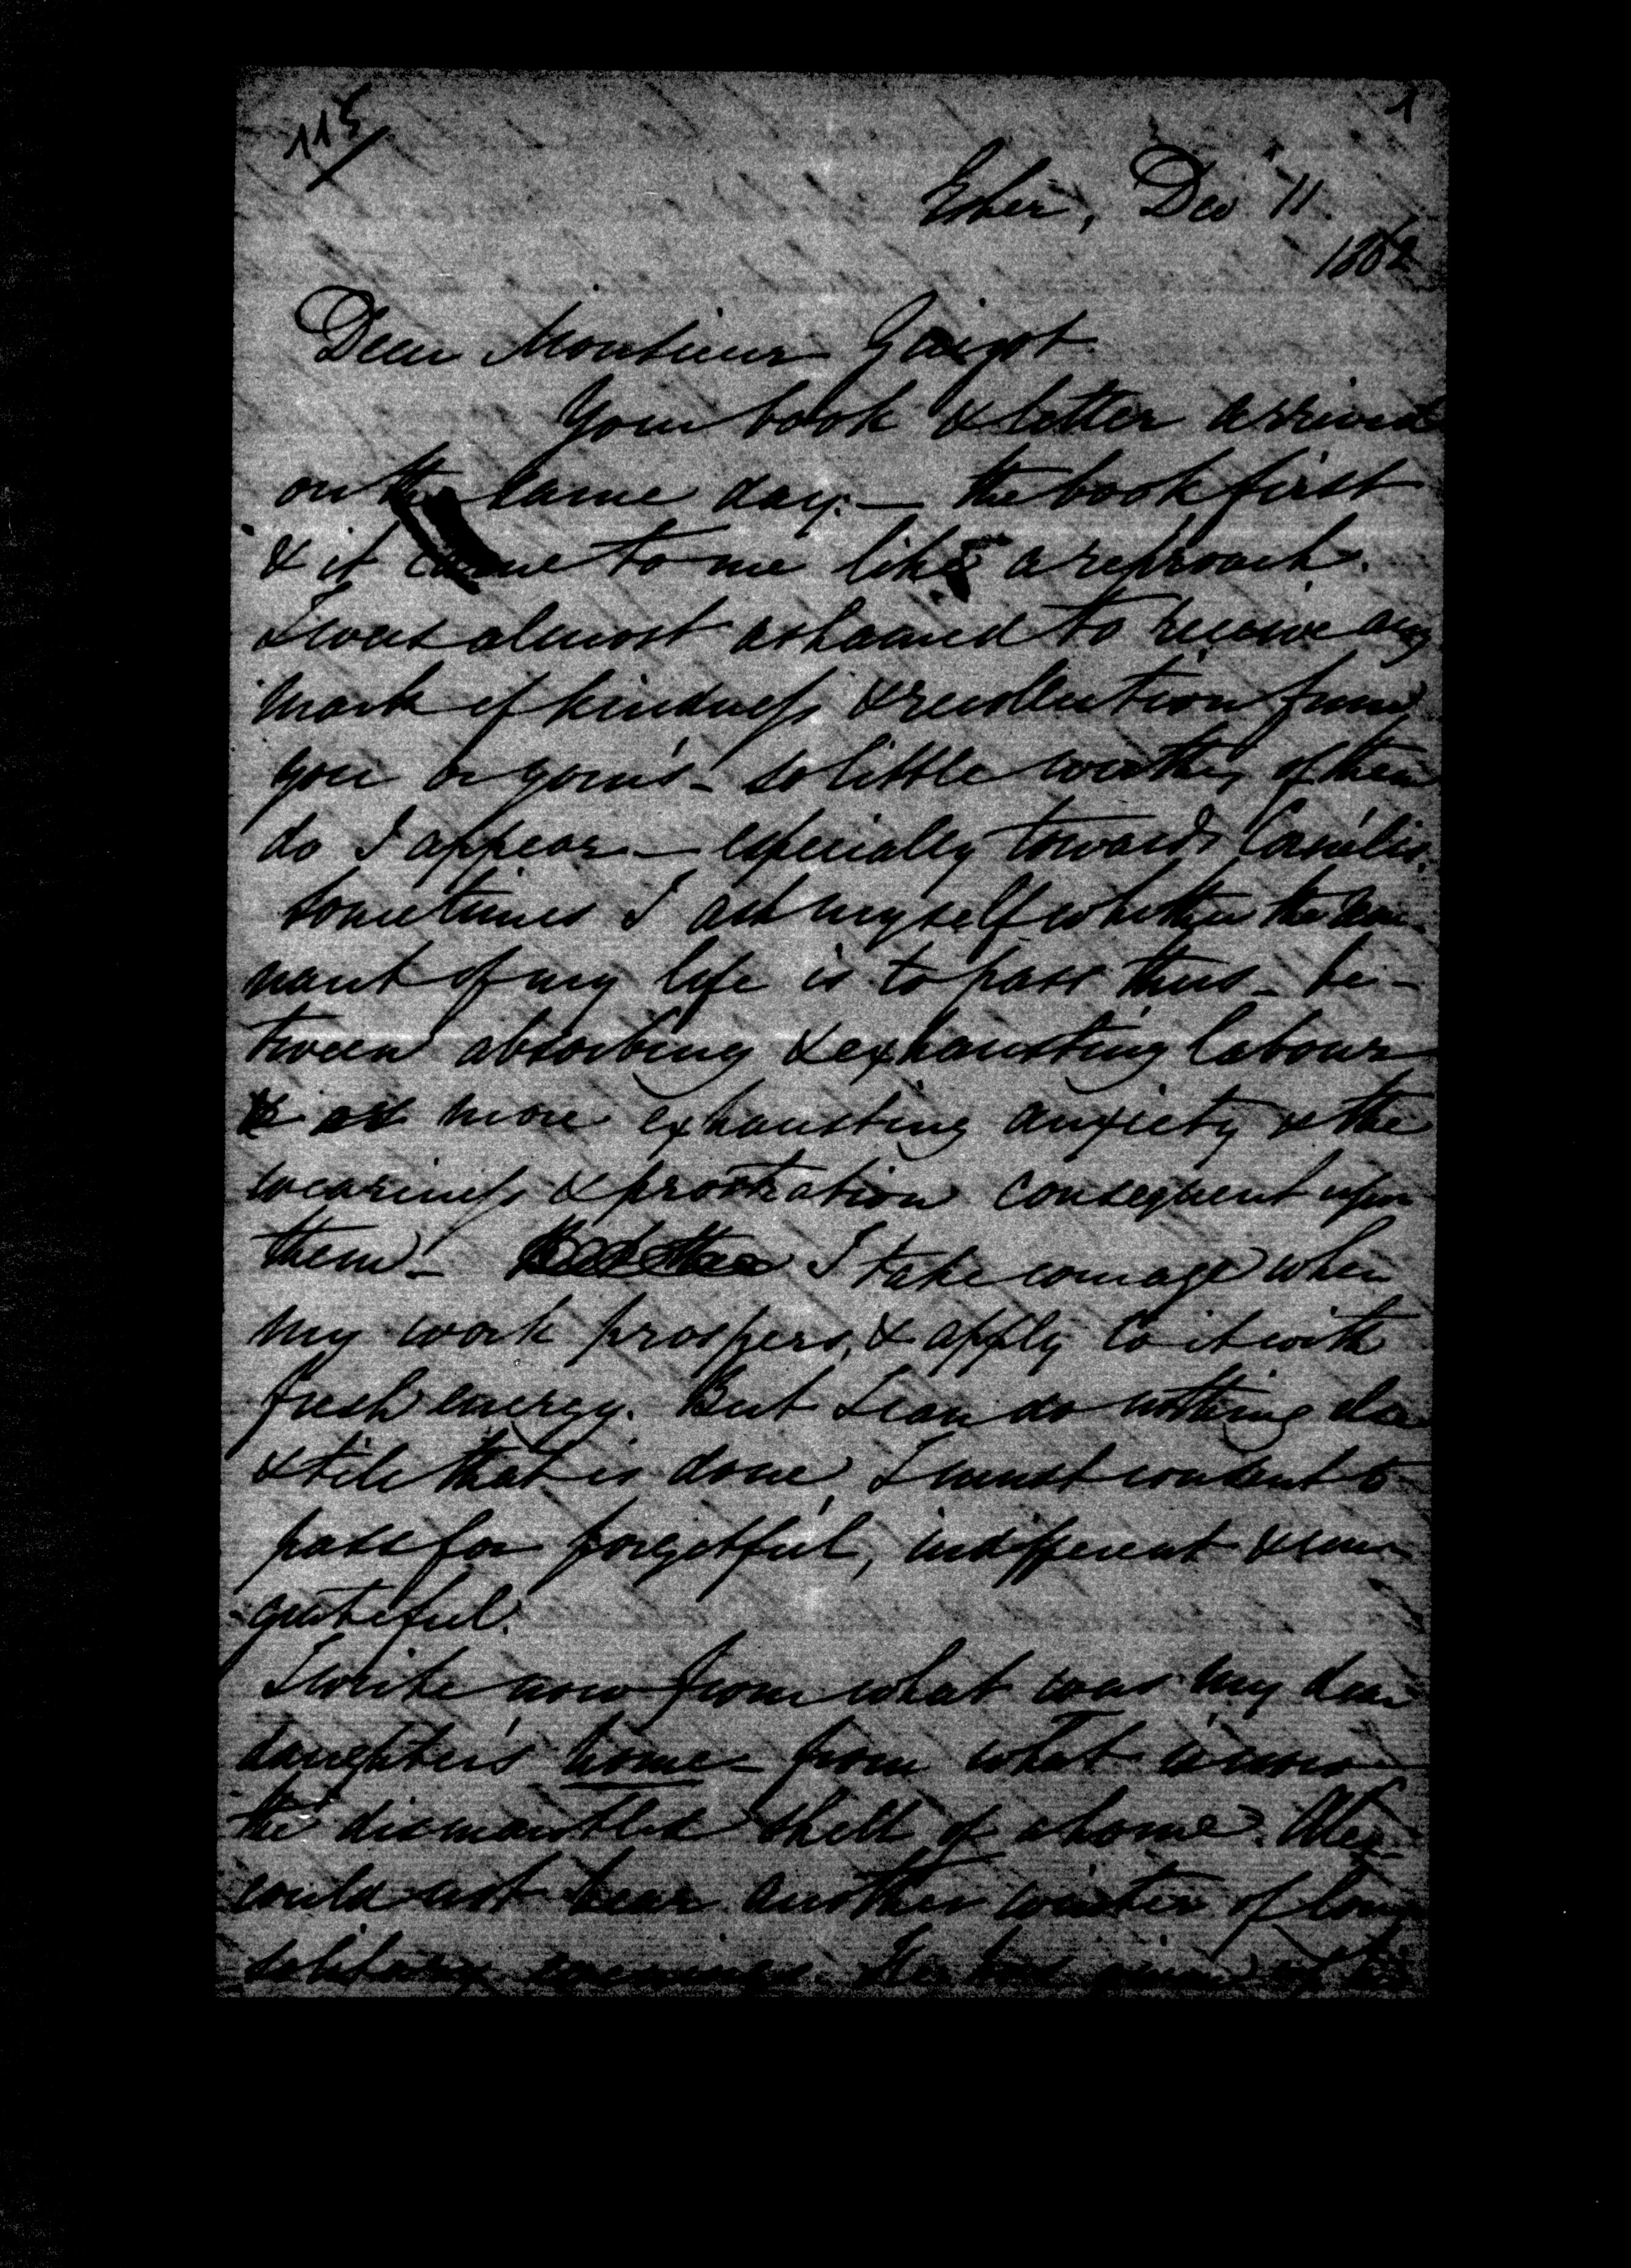 115
1
Esher, Dec 11.
1862
Dear Monsieur Guizot
Your book & letter arrived
on the same day. — the book first
& it came to me like a reproach.
I was almost ashamed to receive any
mark of kindness & recollection from
you or your's — so little worthy of them
do I appear — especially towards
sometimes I ask myself whether the rem-
nant of my life is to pass thus — be-
tween absorbing & exhausting labour
& more exhausting anxiety & the
weariness & prostration consequent upon
them — I take courage when
my work prospers, & apply to it with
fresh energy. But I can do nothing else
& till that is done, I must consent to
pass for forgetful, indifferent & un-
grateful.
I write now from what was my dear
daughter's home — from what is now
the dismantled shell of a home. Alex
could not bear another winter of long
solitary evenings. He has given up